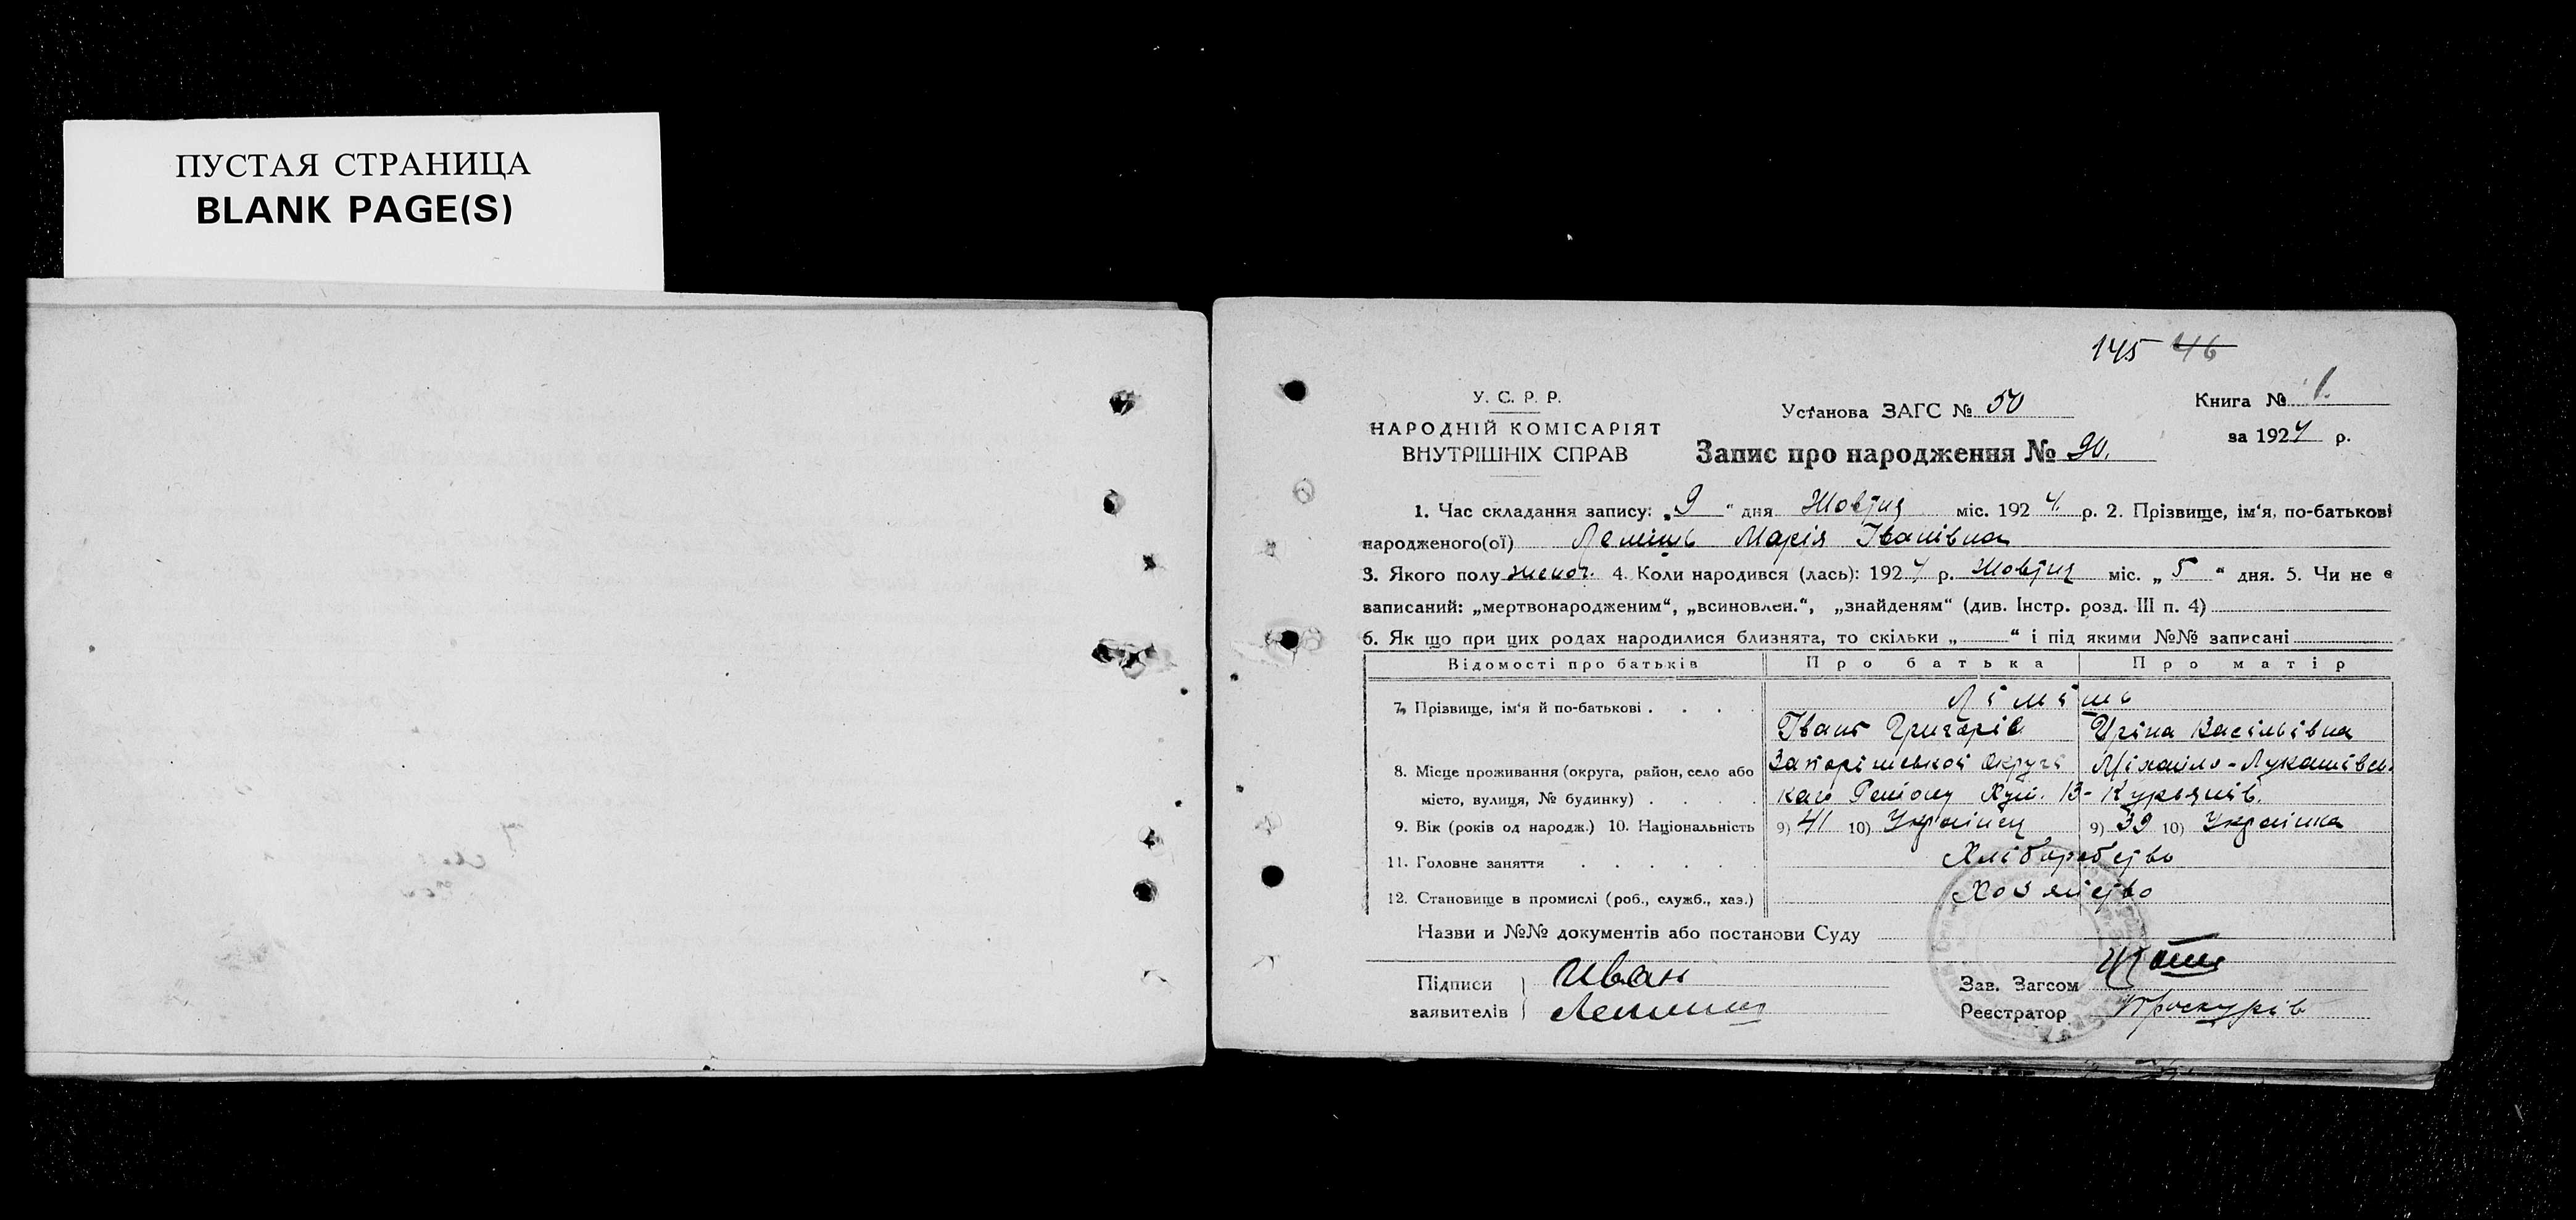 ПУСТАЯ СТРАНИЦА
BLANK PAGE(S)
145 46
У. С. Р. Р.
НАРОДНІЙ КОМІСАРІЯТ
ВНУТРІШНІХ СПРАВ
Установа ЗАГС № 50
Запис про народження № 90.
Книга № 1.
за 1924 р.
1. Час складання запису: „9“ дня Жовтня міс. 1924. р. 2. Прізвище, ім‘я, по-батькові
народженого(ої) Леміш Марія Іванівна
3. Якого полу жіноч. 4. Коли народився (лась): 1924 р. Жовтня міс. „5“ дня. 5. Чи не є
записаний: „мертвонародженим“, „всиновлен.“, „знайденям“ (див. Інстр. розд. III п. 4)
6. Як що при цих родах народилися близнята, то скільки „ “ і під якими №№ записані
Відомості про батьків Про батька Про матір
7. Прізвище, ім‘я й по-батькові . . . . Леміш
Іван Григорів Ирина Васільівна
8. Місце проживання (округа, район, село або Запоріжської Округі Міхайло-Лукашівсь-
місто, вулиця, № будинку) . . . . каго Району Хут. В-Курьянів.
9. Вік (років од народж.) 10. Національність 9) 41 10) Українец 9) 39 10) Українка
11. Головне заняття . . . . . . Хліборобство
12. Становище в промислі (роб., служб., хаз.) Хозяйство
Назви и №№ документів або постанови Суду
Підписи Иван
заявителів Лемиш
Зав. Загсом
Реєстратор Проскурів